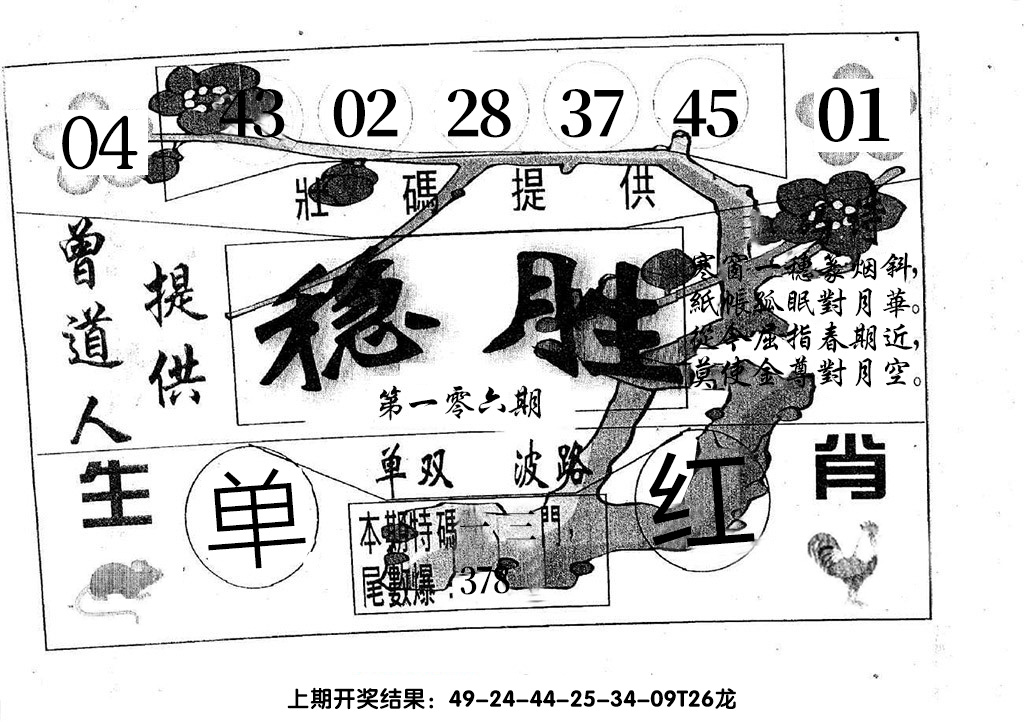 04 43 02 28 37 45 01
壯碼提供
曾道人
提供
穩胜
第一零六期
寒窗一穗篆烟斜,
紙帳孤眠對月華。
從今屈指春期近,
莫使金尊對月空。
单双 波路
生肖
单
红
本期特碼一、三門,
尾數爆:378
上期开奖结果：49-24-44-25-34-09T26龙